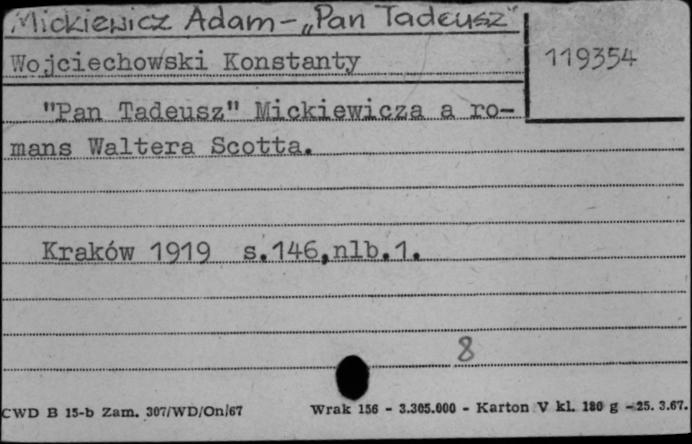 Mickiewicz Adam - „Pan Tadeusz"
Wojciechowski Konstanty
119354
"Pan Tadeusz" Mickiewicza a ro-
mans Waltera Scotta.
Kraków 1919 s.146,nlb.1.
8
CWD B 15-b Zam. 307/WD/On/67 Wrak 156 - 3.305.000 - Karton V kl. 180 g - 25. 3.67.